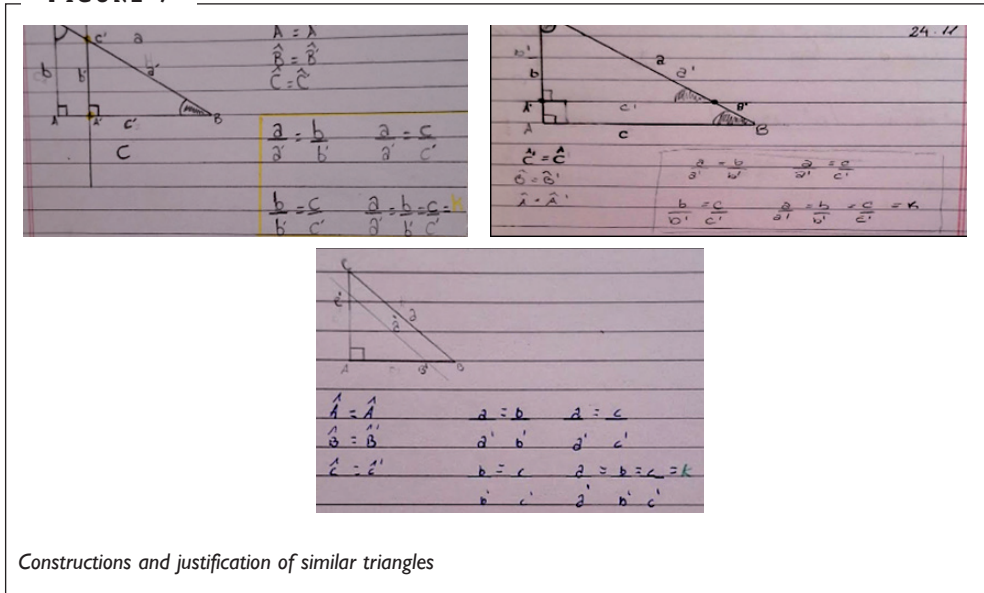 a
Â = Â
B̂ = B̂'
Ĉ = Ĉ'
c'
b
b'
a'
A
A'
c'
B
C
a/a' = b/b' a/a' = c/c'
b/b' = c/c' a/a' = b/b' = c/c' = k
24.11
b'
a
a'
b
A'
c'
B'
A
c
B
Ĉ' = Ĉ
B̂ = B̂'
Â = Â'
a/a' = b/b' a/a' = c/c'
b/b' = c/c' a/a' = b/b' = c/c' = k
C
c'
a
a'
A
B'
B
Â = Â
B̂ = B̂'
ĉ = ĉ'
a/a' = b/b' a/a' = c/c'
b/b' = c/c' a/a' = b/b' = c/c' = k
Constructions and justification of similar triangles